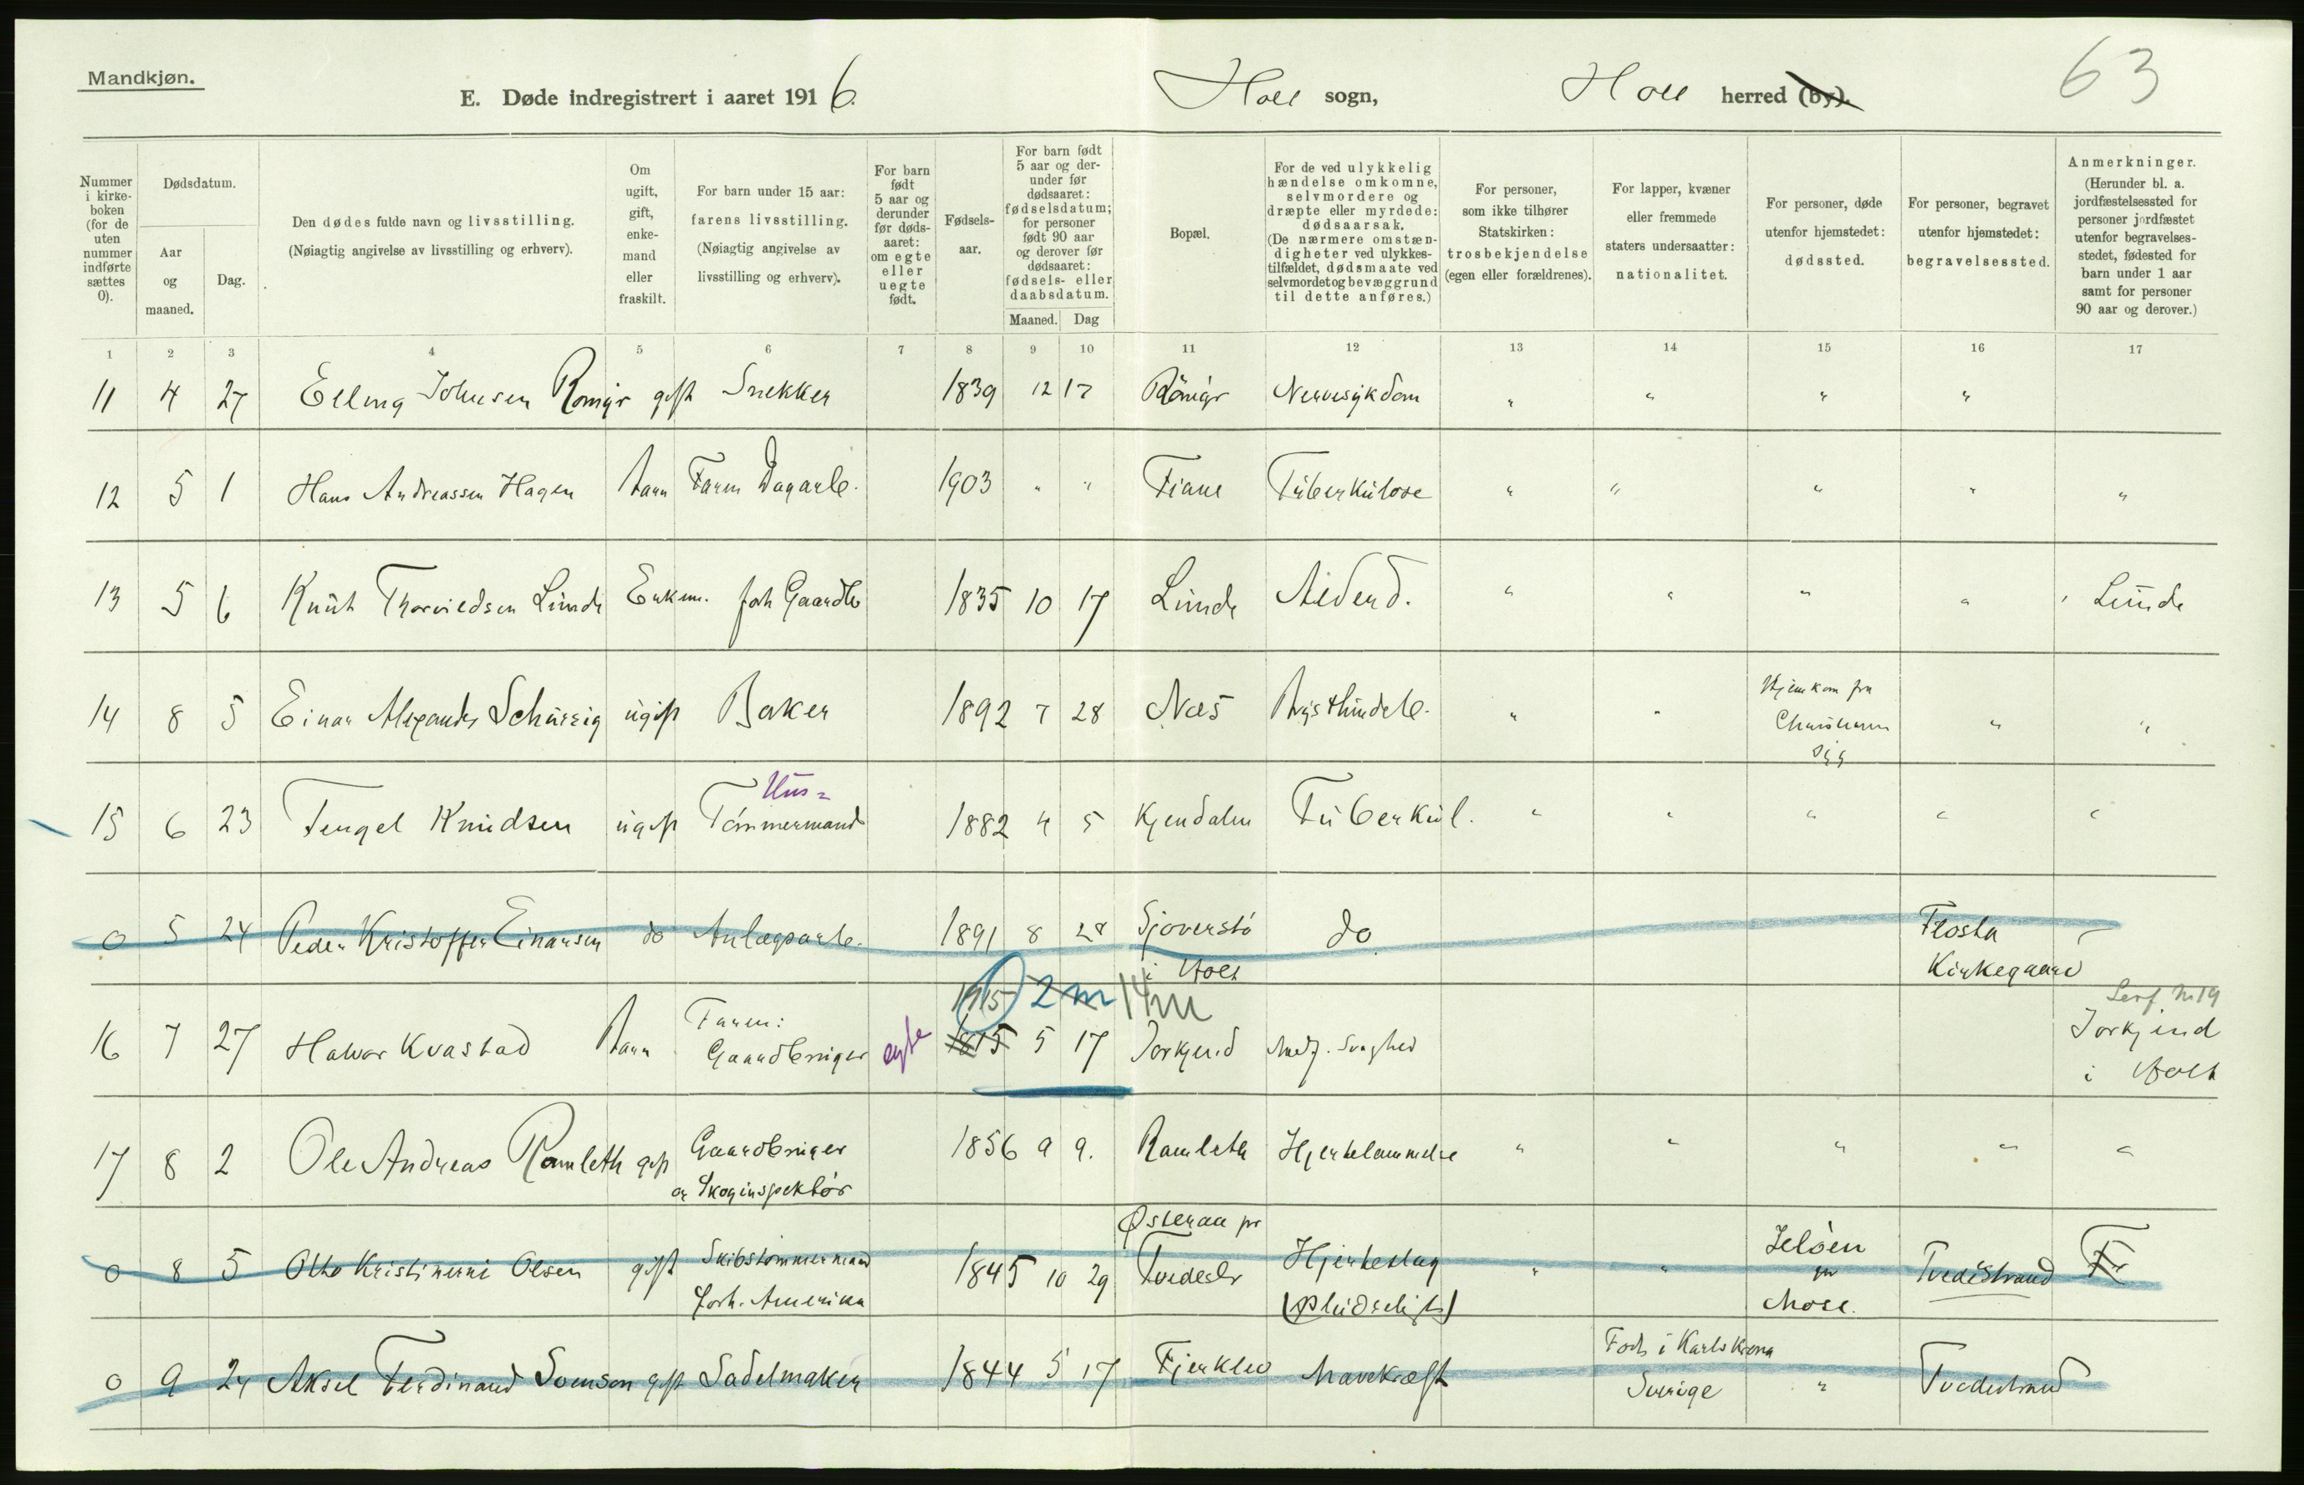 Mandkjøn.
E. Døde indregistrert i aaret 1916.
Holt sogn,
Holt herred (by).
63
Nummer i kirkeboken (for de uten nummer indførte sættes 0).
Dødsdatum.
Aar og maaned.
Dag.
Den dødes fulde navn og livsstilling.
(Nøiagtig angivelse av livsstilling og erhverv).
Om ugift, gift, enkemand eller fraskilt.
For barn under 15 aar: farens livsstilling.
(Nøiagtig angivelse av livsstilling og erhverv).
For barn født 5 aar og derunder før dødsaaret: om egte eller uegte født.
Fødselsaar.
For barn født 5 aar og derunder før dødsaaret: fødselsdatum; for personer født 90 aar og derover før dødsaaret: fødsels- eller daabsdatum.
Maaned. Dag
Bopæl.
For de ved ulykkelig hændelse omkomne, selvmordere og dræpte eller myrdede: dødsaarsak.
(De nærmere omstændigheter ved ulykkestilfældet, dødsmaate ved selvmordet og bevæggrund til dette anføres.)
For personer, som ikke tilhører Statskirken: trosbekjendelse (egen eller forældrenes).
For lapper, kvæner eller fremmede staters undersaatter: nationalitet.
For personer, døde utenfor hjemstedet: dødssted.
For personer, begravet utenfor hjemstedet: begravelsessted.
Anmerkninger.
(Herunder bl. a. jordfæstelsessted for personer jordfæstet utenfor begravelsesstedet, fødested for barn under 1 aar samt for personer 90 aar og derover.)
1 2 3 4 5 6 7 8 9 10 11 12 13 14 15 16 17
11 4 27 Elling Johnsen gift Snekker 1839 12 17 Nervesykdom " " " "
12 5 1 Hans Andreassen Hagen barn Faren Dagarb. 1903 " " Fiane Tüberkülose " " " " "
13 5 6 Knüt Thorvildsen Lünde Enkm. forh Gaardbr 1835 10 17 Lünde Alderd. " " " " " Lünde
14 8 5 Einar Alexander Schürrig ügift Baker 1892 7 28 Næs " " Hjemkom fra " "
Hus=
15 6 23 Tengel Knüdsen ügift Tømmermand 1882 4 5 Kjendalen Tüberkül. " " " " "
0 5 24 Peder Kristoffer Einarsen do Anlægsarb. 1891 8 28 Sjøverstø i Holt do Flosta Kirkegaard
1915 2 m 14 m
16 7 27 Halvor Kvastad barn Faren: Gaardbruger egte 1815 5 17 Jorkjend Medf. Svaghed
Jorkjend
i Holt
17 8 2 Ole Andreas Ramleth gift Gaardbruger og Skoginspektør 1856 9 9. Ramleth Hjertelammelse " " " " "
0 8 5 Otto Kristinerni Olsen gift Skibstømmermand forh. Amerika 1845 10 29 Østeraa pr Tvedestr Hjerteslag (plüdseligt) " " Jeløen pr Moss. Tvedestrand
0 9 24 Aksel Ferdinand Svenson gift Sadelmaker 1844 5 17 Fjerklev Mavekræft " Født i Karlskrona Sverige " Tvedestrand